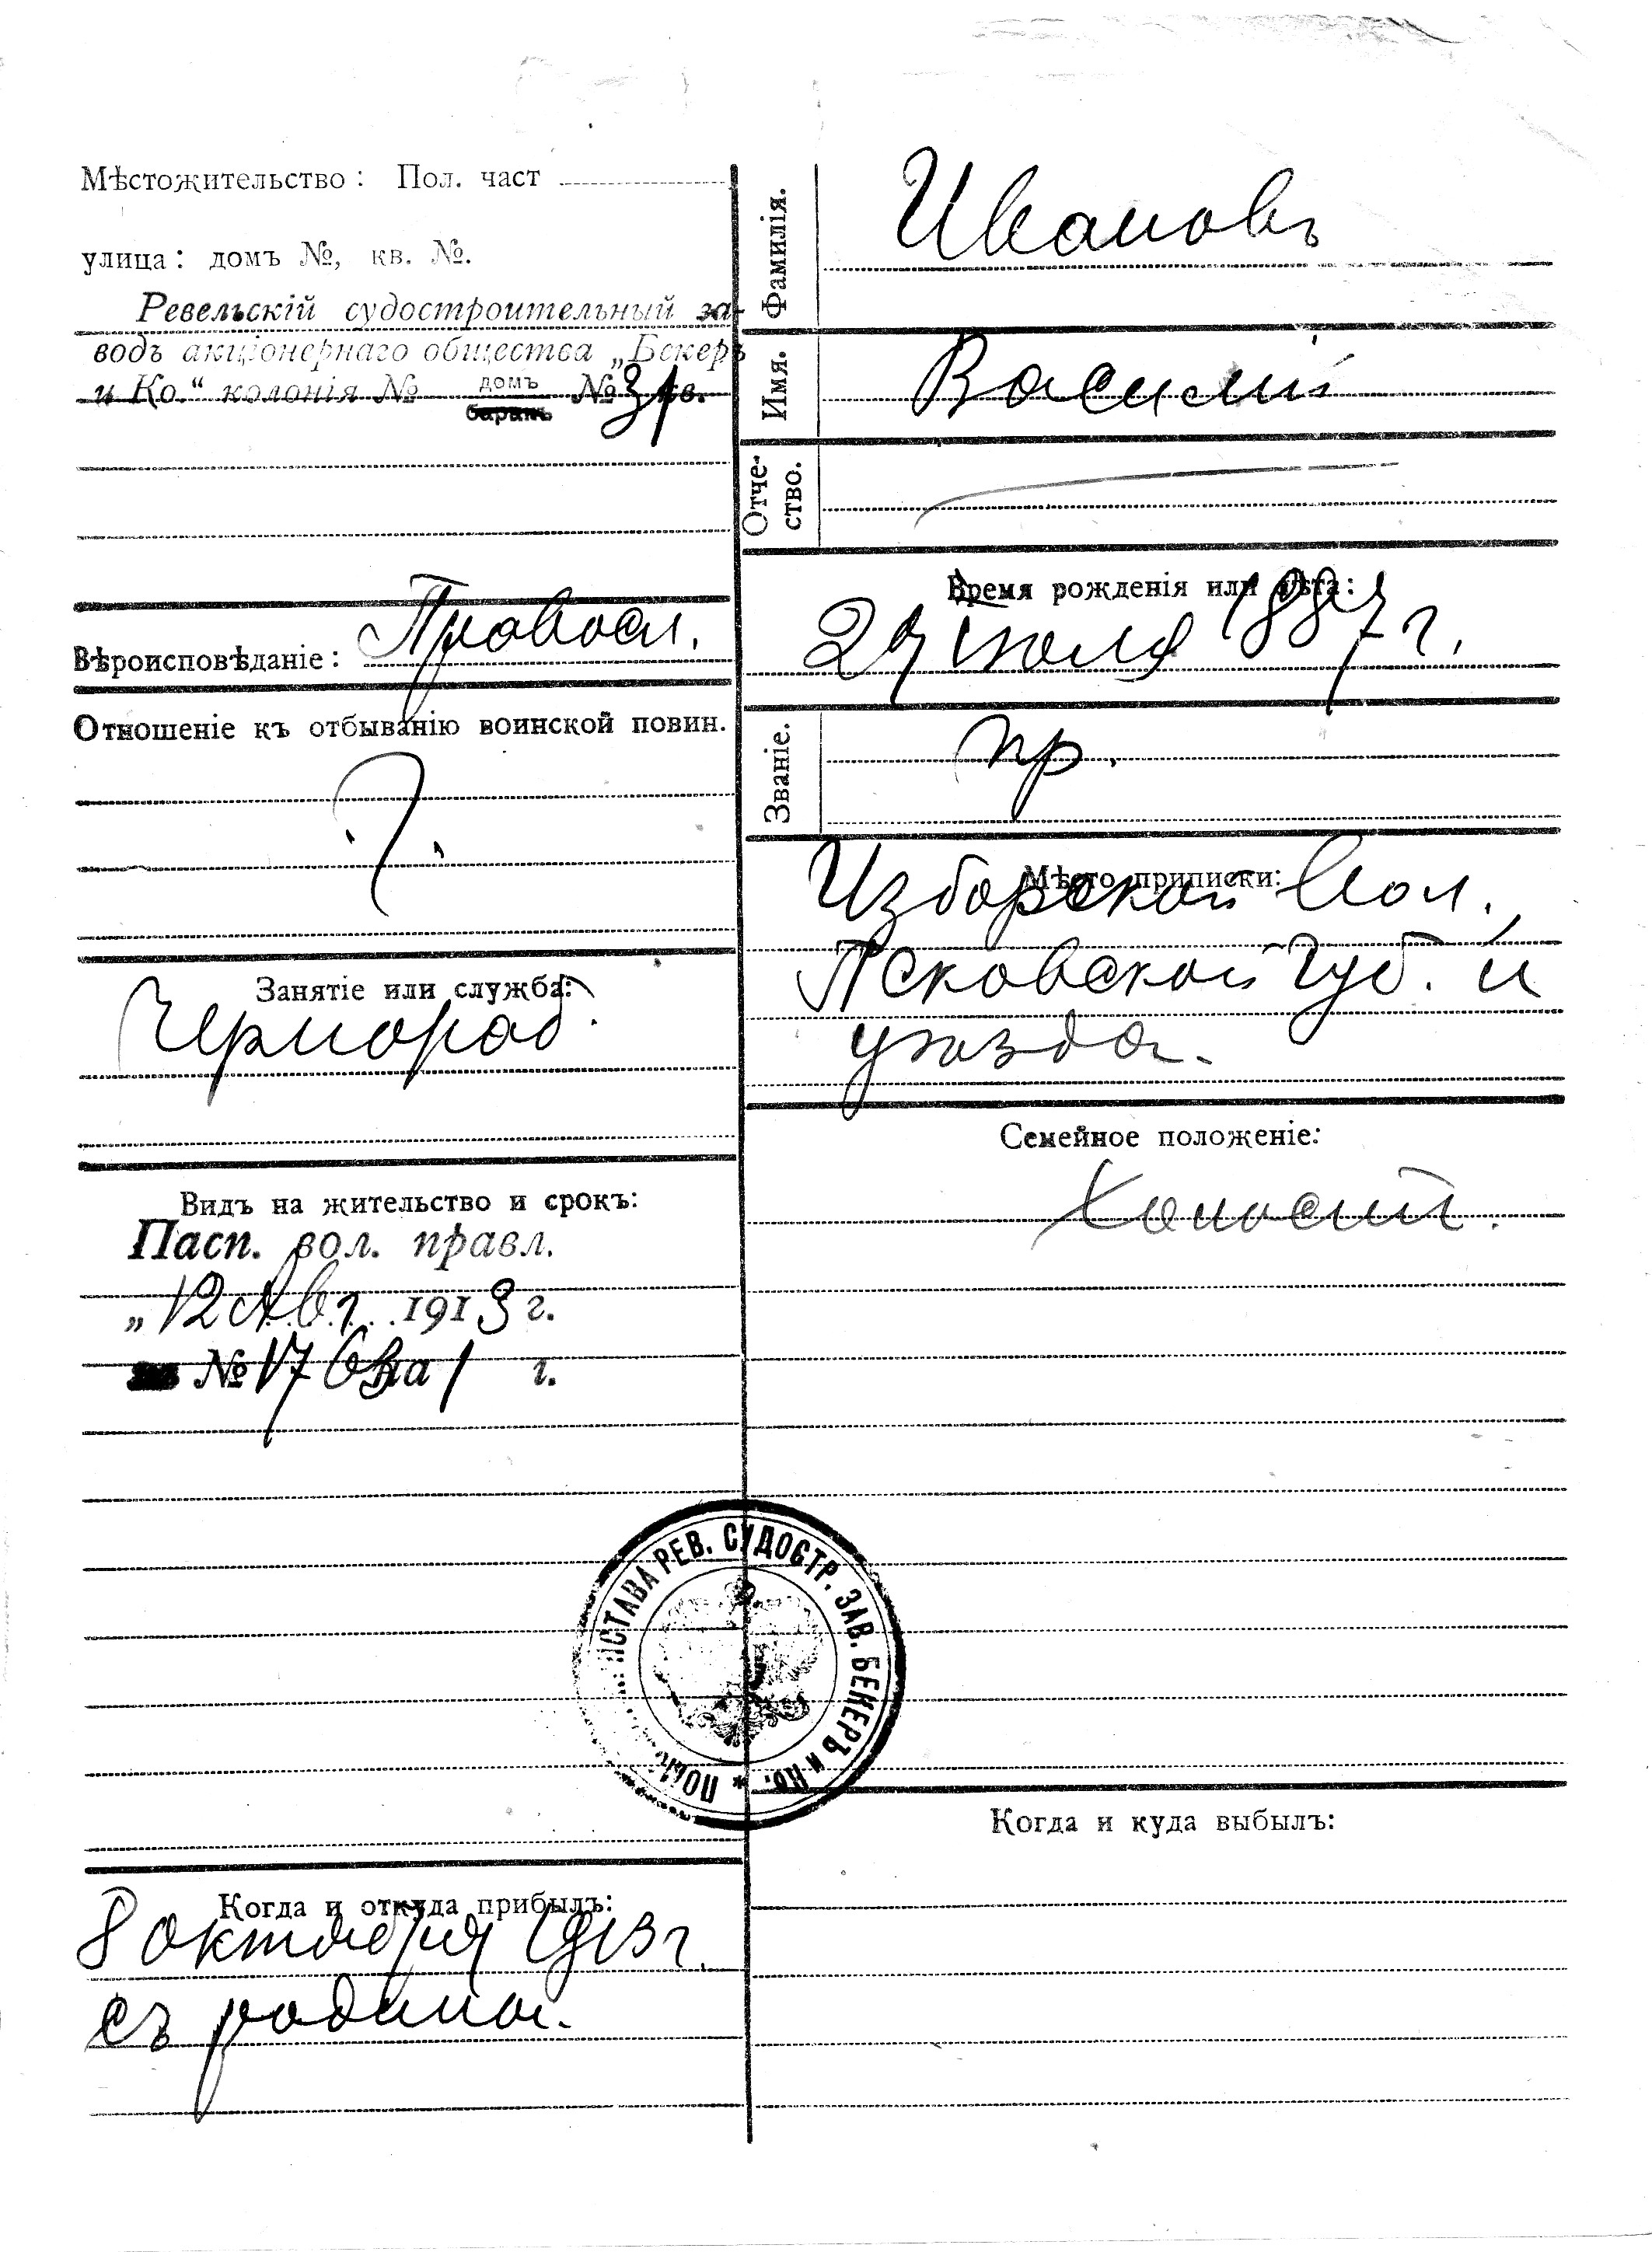 Мѣстожительство: Пол. част
улица: домъ №, кв. №.
Ревельскій судостроительный за-
водъ акціонернаго общества „Бекеръ
и Ко.“ колонія № домъ № 31 кв.
баракъ
Вѣроисповѣданіе: Правосл.
Отношеніе къ отбыванію воинской повин.
?
Занятіе или служба:
Чернораб.
Видъ на жительство и срокъ:
Пасп. вол. правл.
„12 Авг. 1913 г.
№ на 1 г.
Когда и откуда прибылъ:
8 октября 1913 г.
съ родины.
Фамилія.
Ивановъ
Имя.
Василій
Отче-
ство.
Время рожденія или лѣта:
29 іюля 1887 г.
Званіе.
кр.
Мѣсто приписки:
Изборской вол.
Псковской губ. и
уѣзда.
Семейное положеніе:
Холостій.
РЕВ. СУДОСТР. ЗАВ. БЕКЕРЪ и Ко. *
Когда и куда выбылъ: